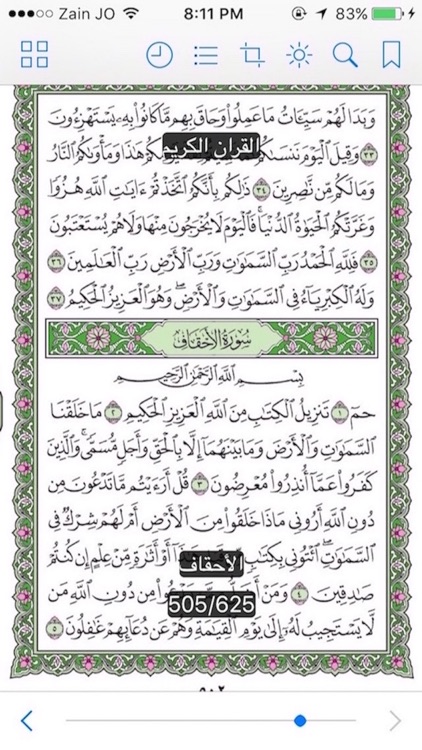 Zain JO
8:11 PM
83%
وَبَدَا لَهُمْ سَيِّـَٔاتُ مَا عَمِلُوا۟ وَحَاقَ بِهِم مَّا كَانُوا۟ بِهِۦ يَسْتَهْزِءُونَ
القران الكريم
٣٣ وَقِيلَ ٱلْيَوْمَ نَنسَىٰكُمْ هَٰذَا وَمَأْوَىٰكُمُ ٱلنَّارُ
وَمَا لَكُم مِّن نَّٰصِرِينَ ٣٤ ذَٰلِكُم بِأَنَّكُمُ ٱتَّخَذْتُمْ ءَايَٰتِ ٱللَّهِ هُزُوًا
وَغَرَّتْكُمُ ٱلْحَيَوٰةُ ٱلدُّنْيَا ۚ فَٱلْيَوْمَ لَا يُخْرَجُونَ مِنْهَا وَلَا هُمْ يُسْتَعْتَبُونَ
٣٥ فَلِلَّهِ ٱلْحَمْدُ رَبِّ ٱلسَّمَٰوَٰتِ وَرَبِّ ٱلْأَرْضِ رَبِّ ٱلْعَٰلَمِينَ ٣٦
وَلَهُ ٱلْكِبْرِيَآءُ فِى ٱلسَّمَٰوَٰتِ وَٱلْأَرْضِ ۖ وَهُوَ ٱلْعَزِيزُ ٱلْحَكِيمُ ٣٧
سُورَةُ الأَحْقَافِ
بِسْمِ ٱللَّهِ ٱلرَّحْمَٰنِ ٱلرَّحِيمِ
حمٓ ١ تَنزِيلُ ٱلْكِتَٰبِ مِنَ ٱللَّهِ ٱلْعَزِيزِ ٱلْحَكِيمِ ٢ مَا خَلَقْنَا
ٱلسَّمَٰوَٰتِ وَٱلْأَرْضَ وَمَا بَيْنَهُمَآ إِلَّا بِٱلْحَقِّ وَأَجَلٍ مُّسَمًّى ۚ وَٱلَّذِينَ
كَفَرُوا۟ عَمَّآ أُنذِرُوا۟ مُعْرِضُونَ ٣ قُلْ أَرَءَيْتُم مَّا تَدْعُونَ مِن
دُونِ ٱللَّهِ أَرُونِى مَاذَا خَلَقُوا۟ مِنَ ٱلْأَرْضِ أَمْ لَهُمْ شِرْكٌ فِى
ٱلسَّمَٰوَٰتِ ۖ ٱئْتُونِى بِكِتَٰبٍ أَوْ أَثَٰرَةٍ مِّنْ عِلْمٍ إِن كُنتُمْ
الأحقاف
صَٰدِقِينَ ٤ وَمَنْ مِن دُونِ ٱللَّهِ مَن
505/625
لَّا يَسْتَجِيبُ لَهُۥٓ إِلَىٰ يَوْمِ ٱلْقِيَٰمَةِ وَهُمْ عَن دُعَآئِهِمْ غَٰفِلُونَ ٥
٥٠٢